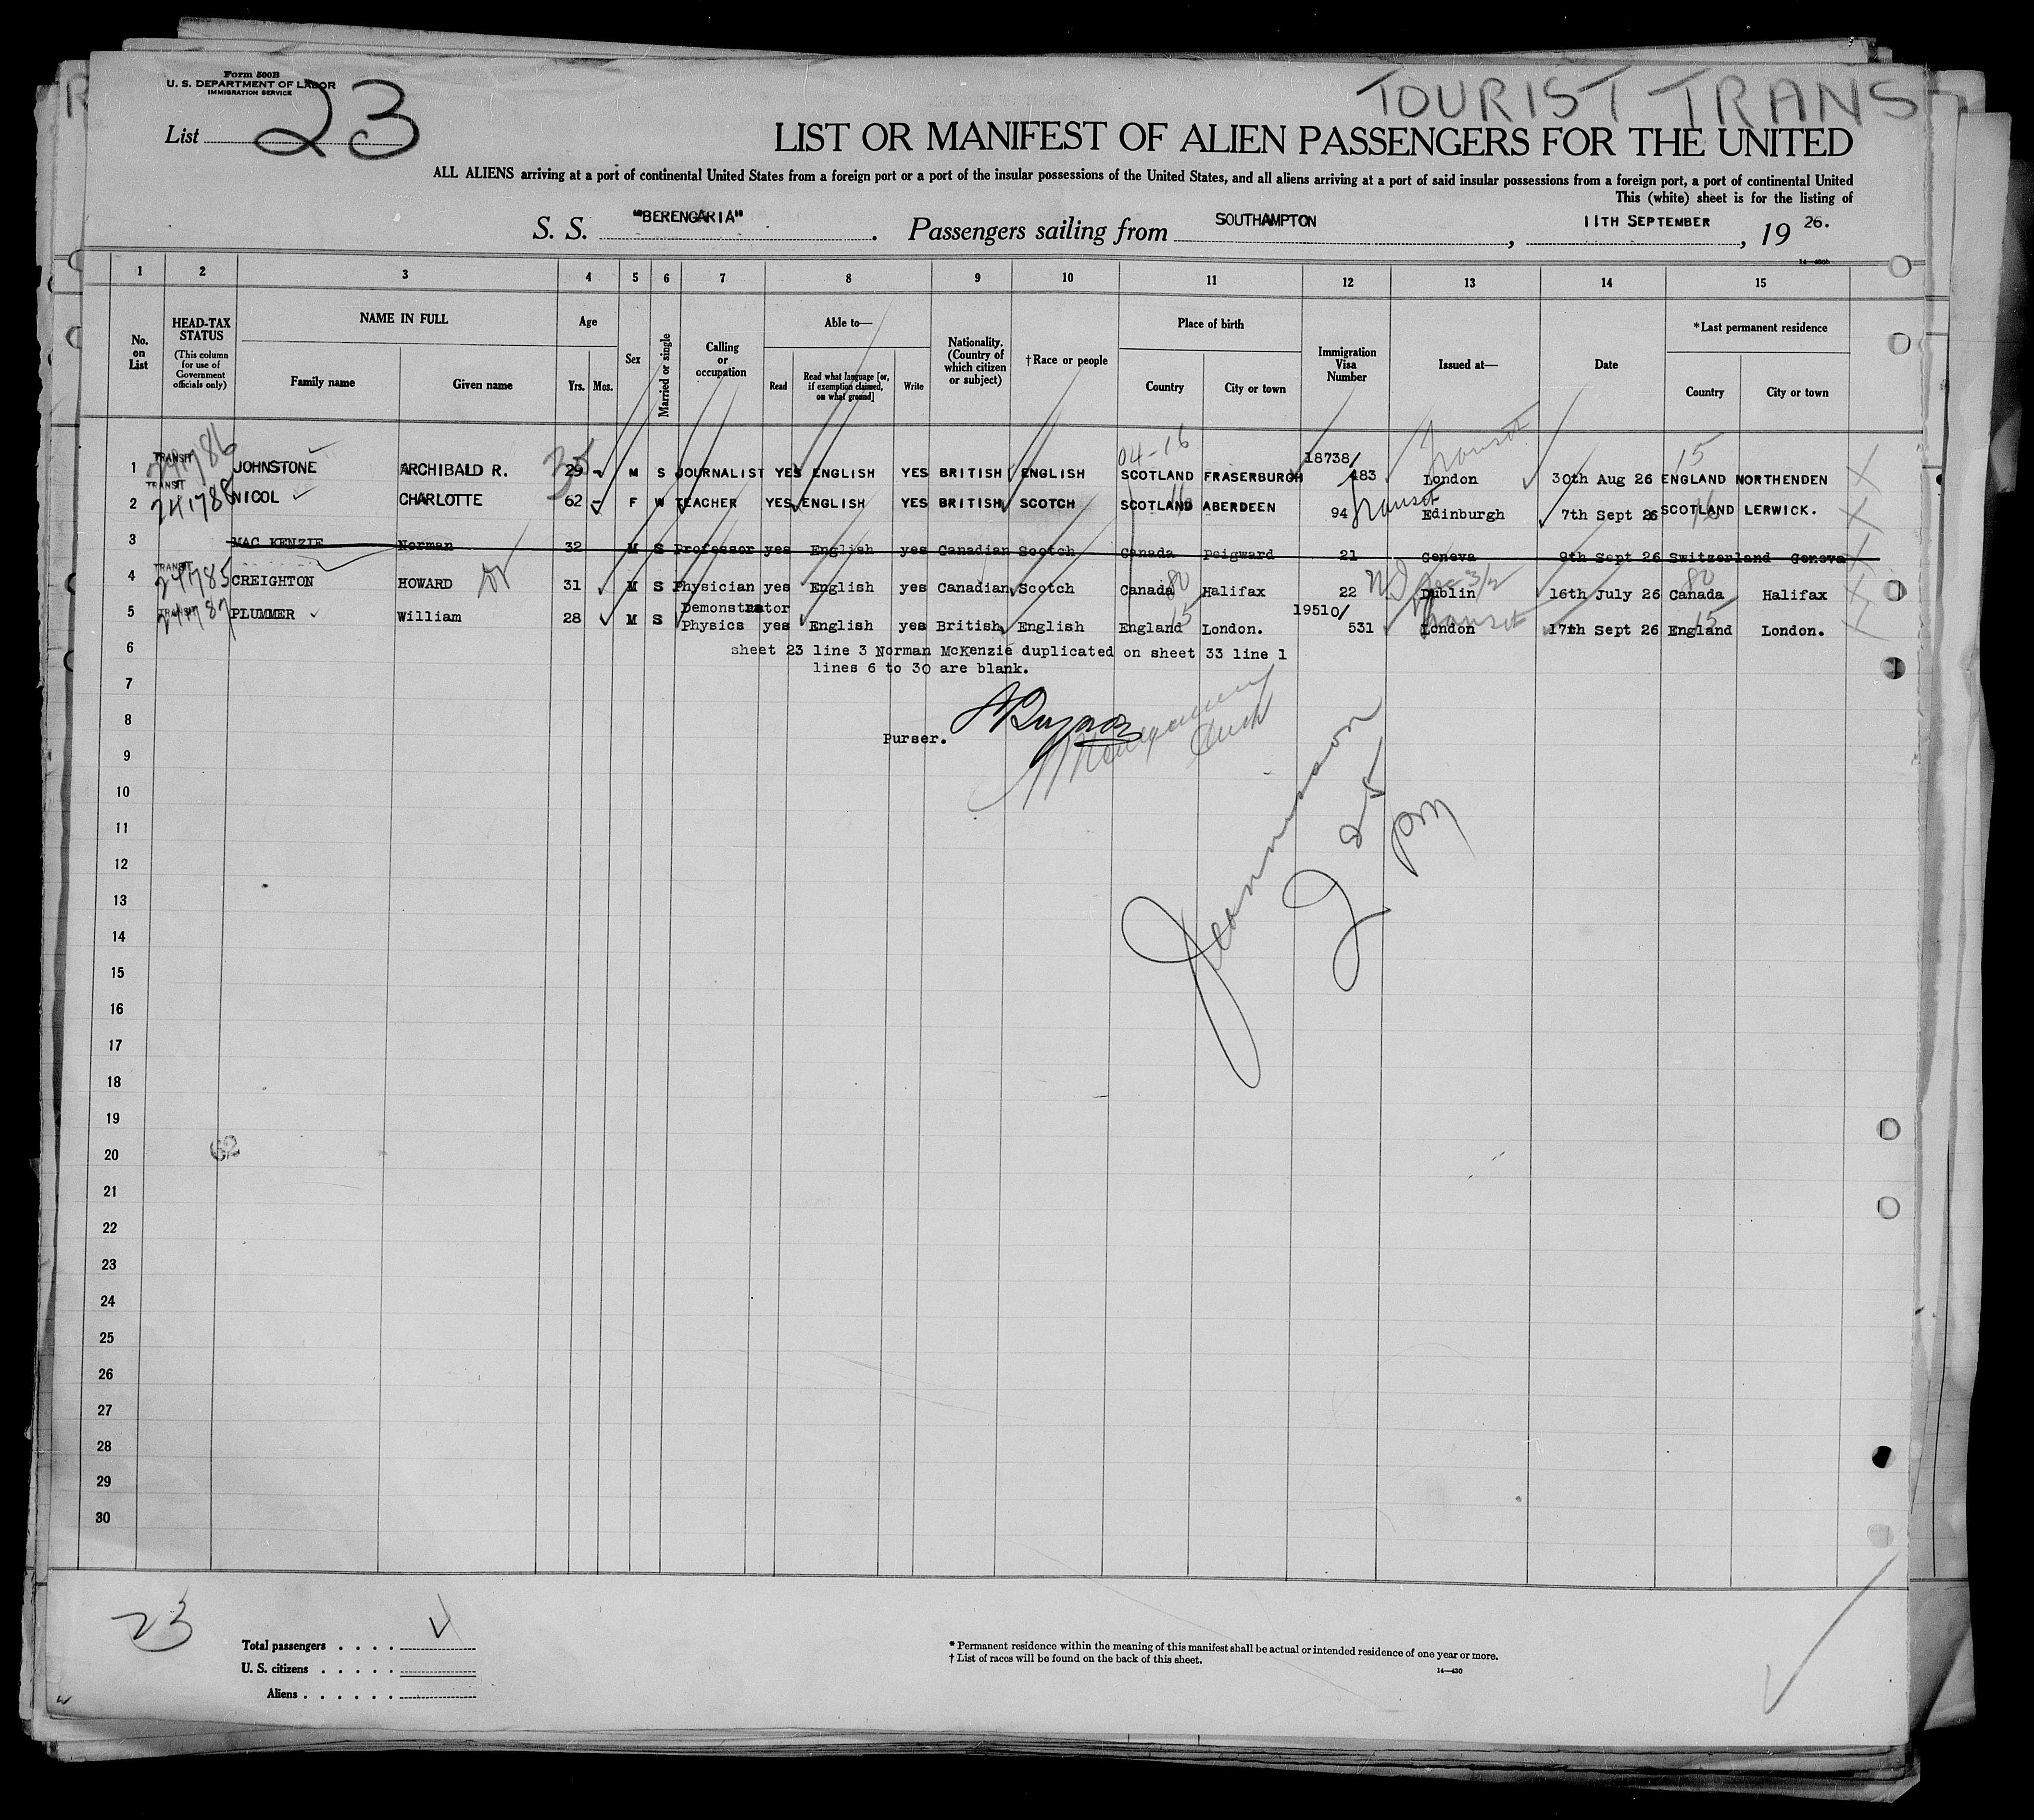 Form 500B
U. S. DEPARTMENT OF LABOR
IMMIGRATION SERVICE
TOURIST TRANS
List 23
LIST OR MANIFEST OF ALIEN PASSENGERS FOR THE UNITED
ALL ALIENS arriving at a port of continental United States from a foreign port or a port of the insular possessions of the United States, and all aliens arriving at a port of said insular possessions from a foreign port, a port of continental United
This (white) sheet is for the listing of
S. S. "BERENGARIA". Passengers sailing from SOUTHAMPTON, 11TH SEPTEMBER, 19 26.
1 2 3 4 5 6 7 8 9 10 11 12 13 14 15
No. on List
HEAD-TAX STATUS (This column for use of Government officials only)
NAME IN FULL
Family name Given name
Age
Yrs. Mos.
Sex
Married or single
Calling or occupation
Able to—
Read
Read what language [or, if exemption claimed, on what ground]
Write
Nationality. (Country of which citizen or subject)
†Race or people
Place of birth
Country City or town
Immigration Visa Number
Issued at—
Date
*Last permanent residence
Country City or town
04-16 transit 15
1 TRANSIT 241786 JOHNSTONE ARCHIBALD R. 35 29 - M S JOURNALIST YES ENGLISH YES BRITISH ENGLISH SCOTLAND FRASERBURGH 18738/ 483 London 30th Aug 26 ENGLAND NORTHENDEN X
2 TRANSIT 241788 NICOL CHARLOTTE 62 - F W TEACHER YES ENGLISH YES BRITISH SCOTCH SCOTLAND 16 ABERDEEN 94 transit Edinburgh 7th Sept 26 SCOTLAND 16 LERWICK. X
3 MAC KENZIE Norman 32 M S Professor yes English yes Canadian Scotch Canada Peigward 21 Geneva 9th Sept 26 Switzerland Geneva X
4 TRANSIT 241785 CREIGHTON HOWARD Dr 31 M S Physician yes English yes Canadian Scotch Canada 80 Halifax 22 Dublin 16th July 26 Canada 80 Halifax X
5 TRANSIT 241787 PLUMMER William 28 M S Demonstrator Physics yes English yes British English England 15 London. 19510/ 531 London transit 17th Sept 26 England 15 London. X
6 sheet 23 line 3 Norman McKenzie duplicated on sheet 33 line 1
lines 6 to 30 are blank.
7
8
Purser.
9
10
11
12
pm
13
14
15
16
17
18
19
20 62
21
22
23
24
25
26
27
28
29
30
23
Total passengers
U. S. citizens
Aliens
* Permanent residence within the meaning of this manifest shall be actual or intended residence of one year or more.
† List of races will be found on the back of this sheet.
14—430